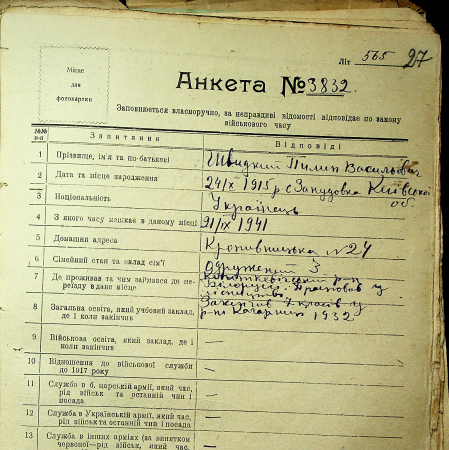 Літ 565 27
Місце
для
фотокартки
Анкета № 3832.
Заповнюється власноручно, за неправдиві відомості відповідає по закону
військового часу
№№
п-п
Запитання
Відповіді
1 Прізвище, ім'я та по-батькові Швидкий Пилип Васильович
2 Дата та місце народження 24/ІХ 1915 р с. Київської
об.
3 Національність Українець
4 З якого часу мешкає в даному місті /ІХ 1941
5 Домашня адреса Кропивницька № 24
6 Сімейний стан та склад сім'ї одружений 3
7 Де проживав та чим займався до переїзду в дане місце р-н
працював у
8 Загальна освіта, який учбовий заклад, де і коли закінчив Закінчив 7 класів у
р-ні Кагарлик 1932
9 Військова освіта, який заклад, де і коли закінчив —
10 Відношення до військової служби до 1917 року —
11 Служба в б. царській армії, який час, рід військ та останній чин і посада —
12 Служба в Українській армії, який час, рід військ та останній чин і посада —
13 Служба в інших арміях (за винятком червоної—рід військ, який час, —